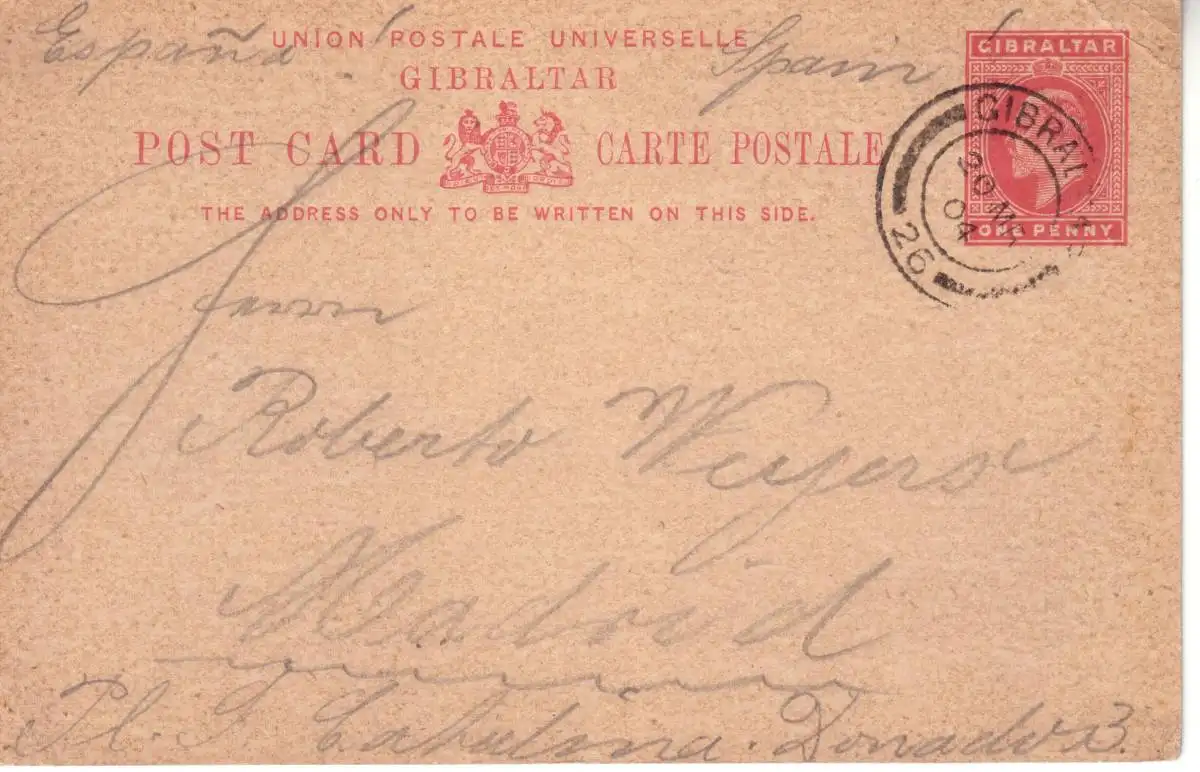 España! Spain!
UNION POSTALE UNIVERSELLE
GIBRALTAR
POST CARD CARTE POSTALE
THE ADDRESS ONLY TO BE WRITTEN ON THIS SIDE.
GIBRALTAR
ONE PENNY
GIBRALTAR
30 MR
04
26
Herrn
Roberto Weyersx
Madrid
Pl. S. Catalina. Donados 3.